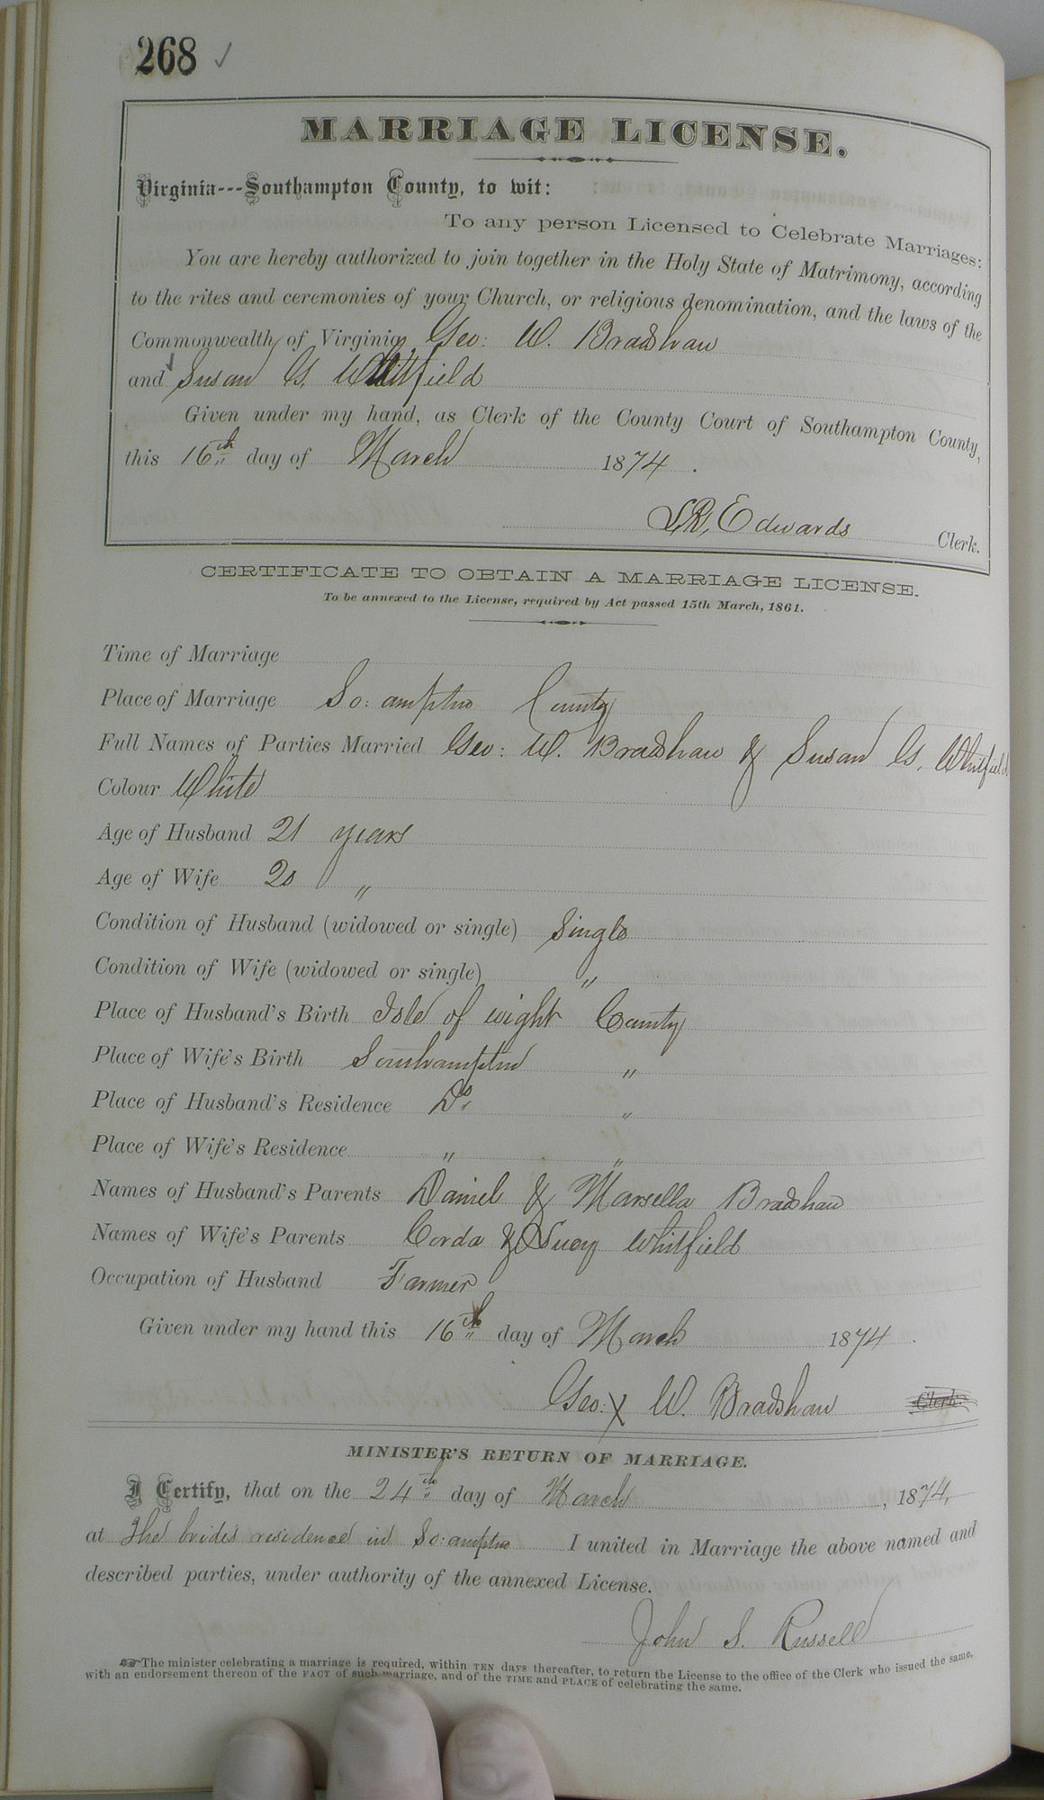 268 ✓
MARRIAGE LICENSE.
Virginia---Southampton County, to wit:
To any person Licensed to Celebrate Marriages:
You are hereby authorized to join together in the Holy State of Matrimony, according
to the rites and ceremonies of your Church, or religious denomination, and the laws of the
Commonwealth of Virginia, Geo: W. Bradshaw
and Susan G. Whitfield
Given under my hand, as Clerk of the County Court of Southampton County,
this 16th day of March 1874.
L.R. Edwards Clerk.
CERTIFICATE TO OBTAIN A MARRIAGE LICENSE.
To be annexed to the License, required by Act passed 15th March, 1861.
Time of Marriage
Place of Marriage So:ampton County
Full Names of Parties Married Geo: W. Bradshaw & Susan G. Whitfield
Colour White
Age of Husband 21 years
Age of Wife 20 "
Condition of Husband (widowed or single) Single
Condition of Wife (widowed or single) "
Place of Husband's Birth Isle of wight County
Place of Wife's Birth Southampton "
Place of Husband's Residence Do "
Place of Wife's Residence " "
Names of Husband's Parents Daniel & Marsella Bradshaw
Names of Wife's Parents Corda & Lucy Whitfield
Occupation of Husband Farmer
Given under my hand this 16th day of March 1874
Geo: X W. Bradshaw Clerk.
MINISTER'S RETURN OF MARRIAGE.
I Certify, that on the 24th day of March, 1874,
at The bride's residence in So:ampton I united in Marriage the above named and
described parties, under authority of the annexed License.
John S. Russell
☞ The minister celebrating a marriage is required, within TEN days thereafter, to return the License to the office of the Clerk who issued the same,
with an endorsement thereon of the FACT of such marriage, and of the TIME and PLACE of celebrating the same.